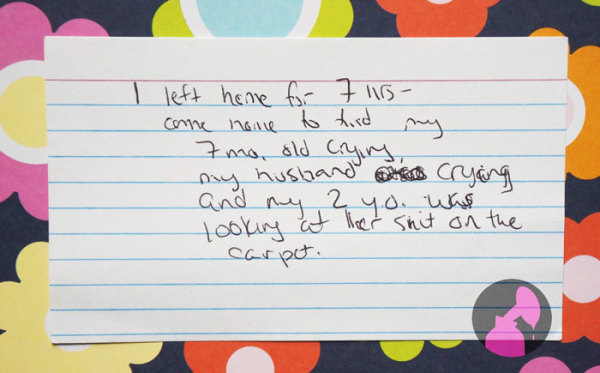 I left home for 7 hrs -
came home to find my
7 mo. old crying,
my husband crying
and my 2 y.o. was
looking at her shit on the
carpet.